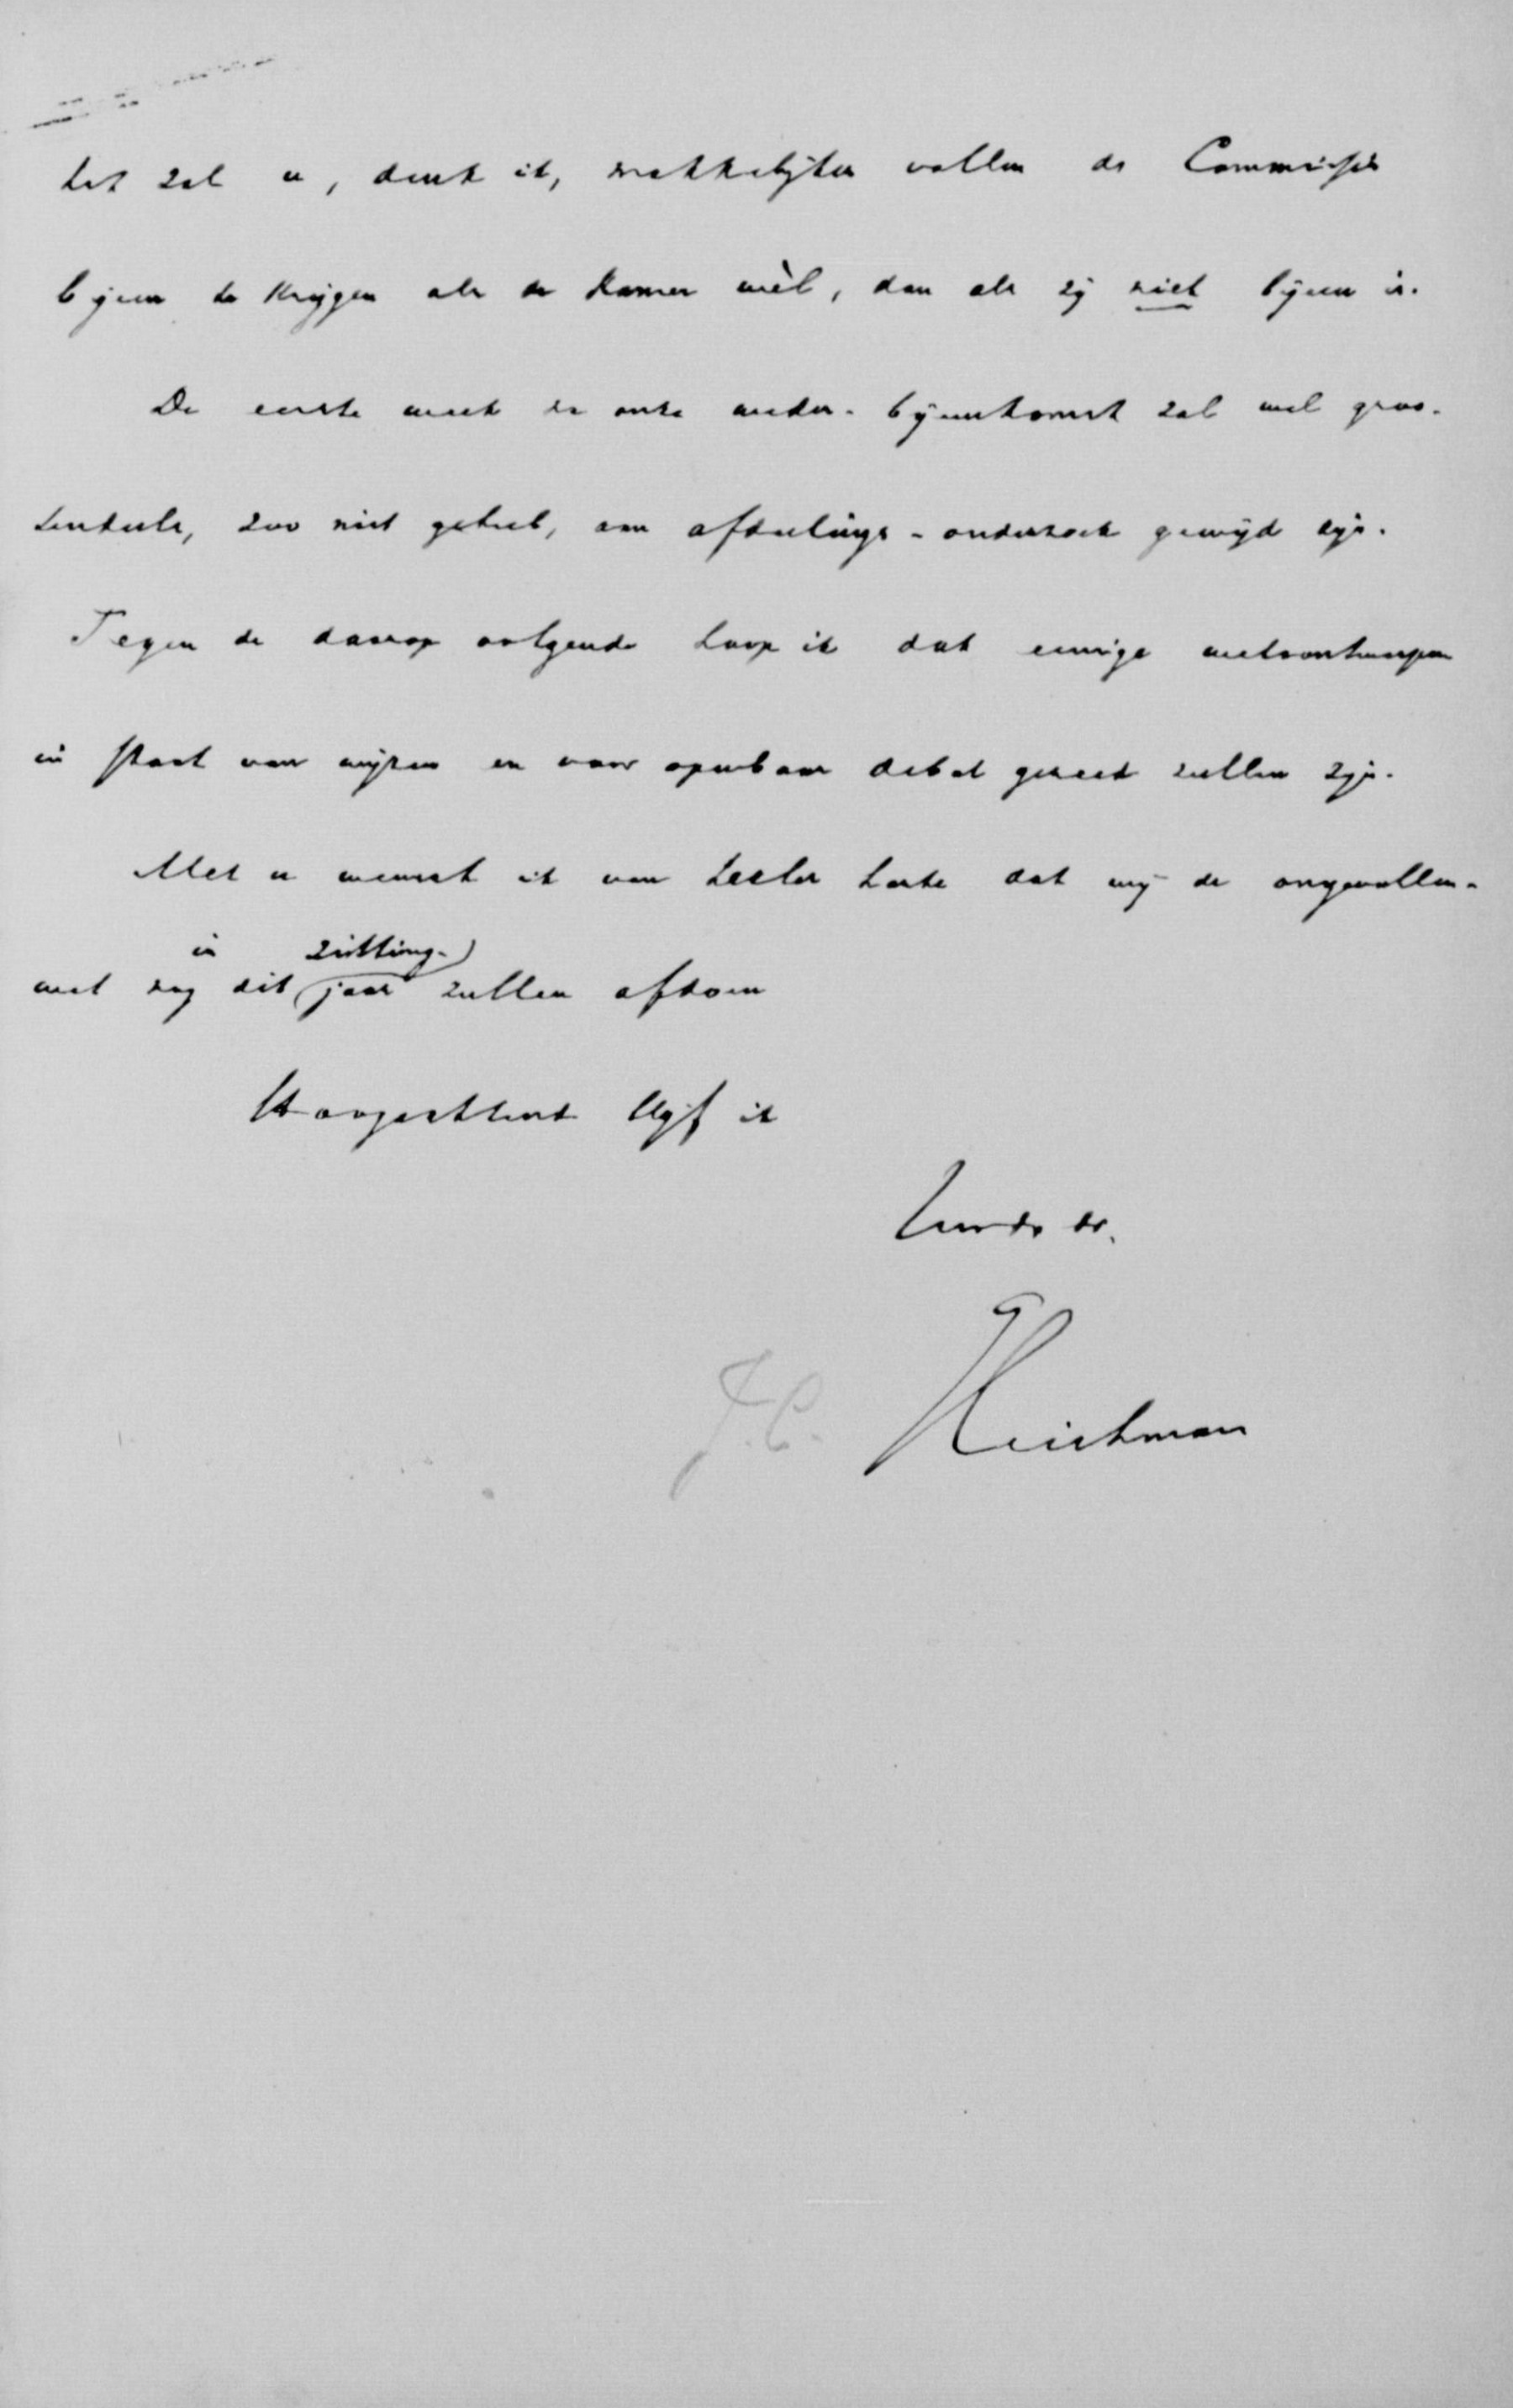 het zal u, denk ik, makkelijker vallen de Commissie
bijeen te krijgen als de Kamer wèl, dan als zij niet bijeen is.
De eerste week na onze weder-bijeenkomst zal wel groo-
tendeels, zoo niet geheel, aan afdeelings-onderzoek gewijd zijn.
Tegen de daarop volgende hoop ik dat eenige wetsontwerpen
in staat van wijzen en voor openbaar debat gereed zullen zijn.
Met u wensch ik van heeler harte dat wij de ongevallen-
in zitting-)
wet nog dit (jaar zullen afdoen
Hoogachtend blijf ik
Uw dw.
J.C. Kielstra